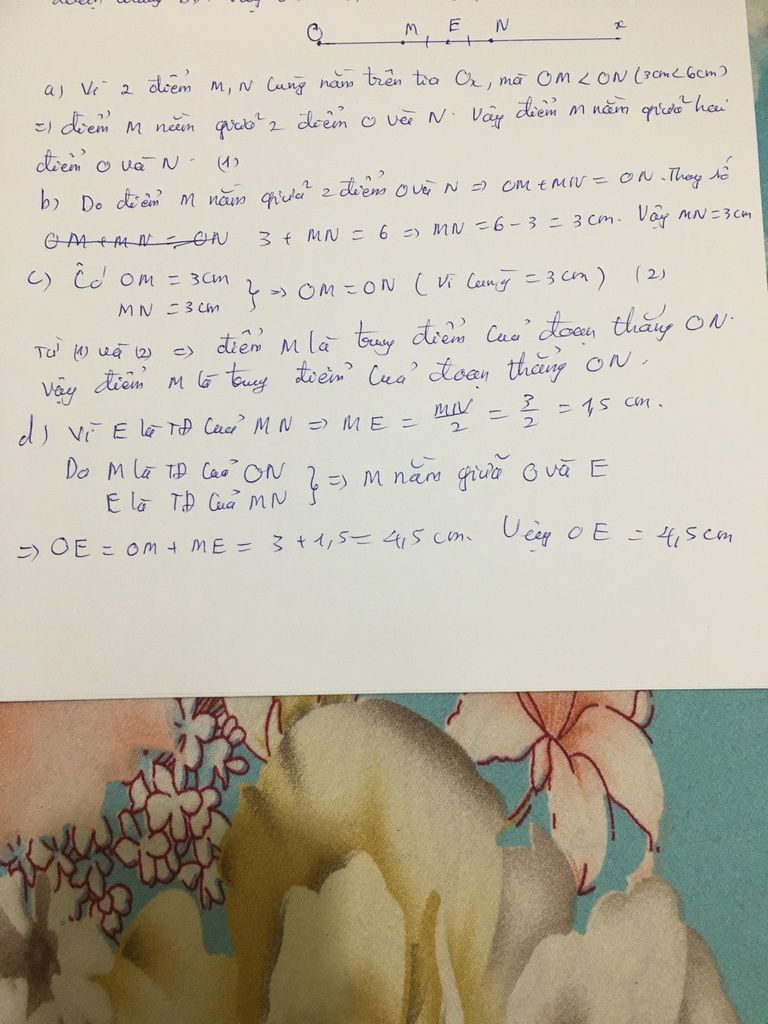 O M E N x
a) Vì 2 điểm M, N cùng nằm trên tia Ox, mà OM < ON (3cm < 6cm)
=) điểm M nằm giữa 2 điểm O và N. Vậy điểm M nằm giữa hai
điểm O và N. (1)
b) Do điểm M nằm giữa 2 điểm O và N => OM + MN = ON. Thay số
OM + MN = ON 3 + MN = 6 => MN = 6 - 3 = 3 cm. Vậy MN = 3 cm
c) Có OM = 3cm
MN = 3cm } => OM = ON (vì cùng = 3 cm) (2)
Từ (1) và (2) => điểm M là trung điểm của đoạn thẳng ON.
Vậy điểm M là trung điểm của đoạn thẳng ON.
d) Vì E là TĐ của MN => ME = MN/2 = 3/2 = 1,5 cm.
Do M là TĐ của ON
E là TĐ của MN } => M nằm giữa O và E
=> OE = OM + ME = 3 + 1,5 = 4,5 cm. Vậy OE = 4,5 cm